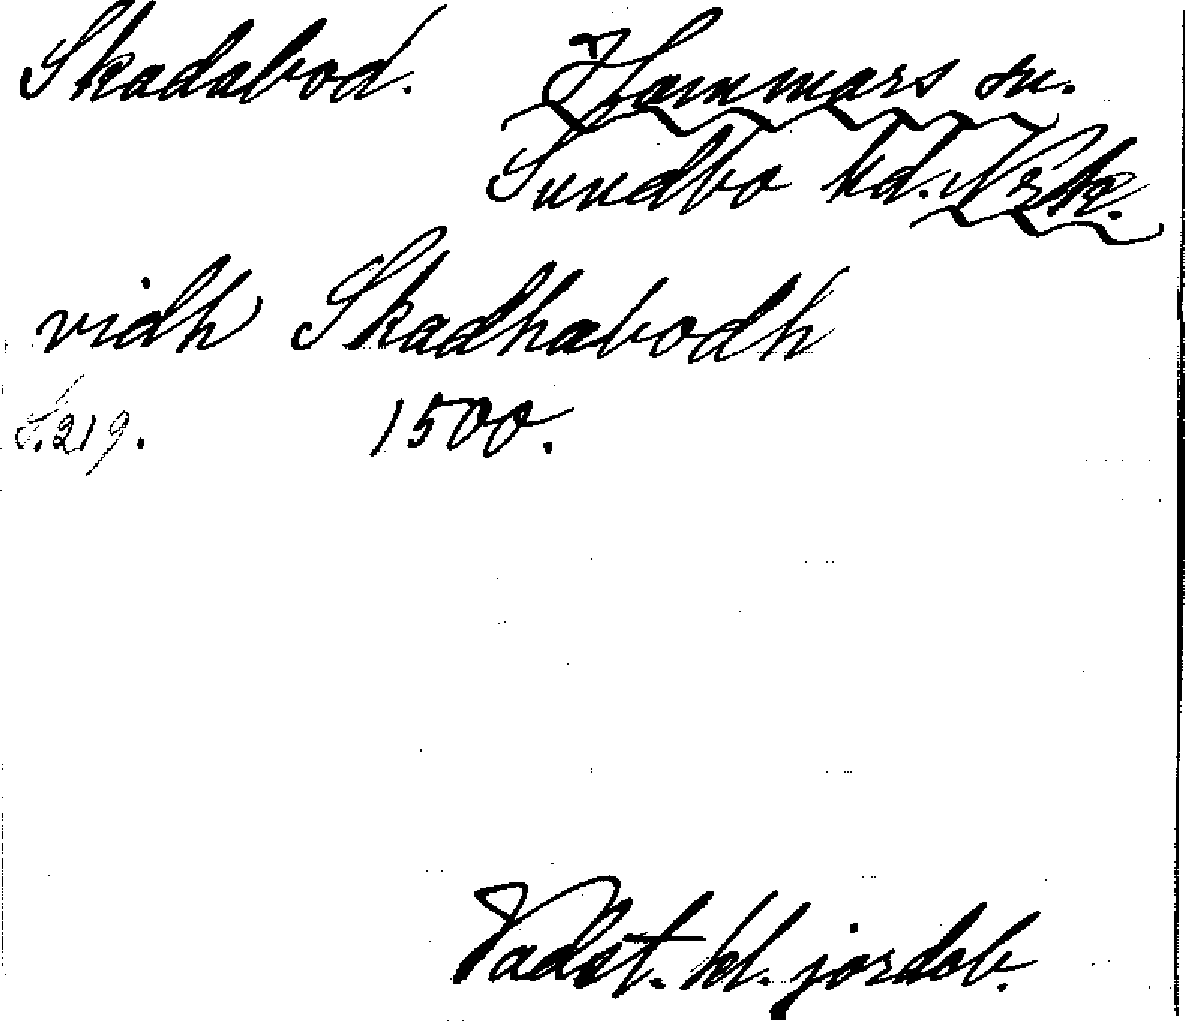 Skadabod. Hammars sn.
Sundbo hd. Nrk.
vidh Skadhabodh
S. 219. 1500.
Vadst. kl. jordeb.